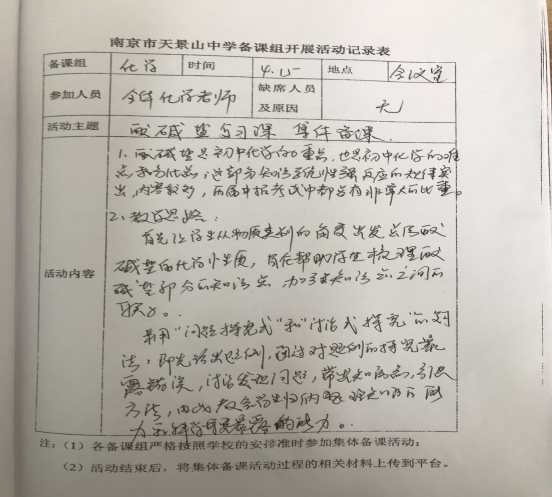 南京市天景山中学备课组开展活动记录表
备课组 化学 时间 4.15 地点 会议室
参加人员 全体化学老师 缺席人员及原因 无
活动主题 酸碱盐复习课 集体备课
活动内容
1. 酸碱盐是初中化学的重点,也是初中化学的难
点和方代品,这部分知识系统性强,反应的规律突
出,内容较多,历届中招考试中都占有非常大的比重。
2、教学思路:
首先让学生从物质类别的角度出发总结酸
碱盐的化学性质,旨在帮助学生梳理酸
碱盐部分的知识点,加强知识点之间的
联系。
采用“问题探究式”和“讨论式”探究的方
法,即先给出题例,通过对题例的探究暴
露错误,讨论发现问题,带出知识点,引出
方法,由此教会学生归纳
的能力。
注:(1)各备课组严格按照学校的安排准时参加集体备课活动;
(2)活动结束后,将集体备课活动过程的相关材料上传到平台。